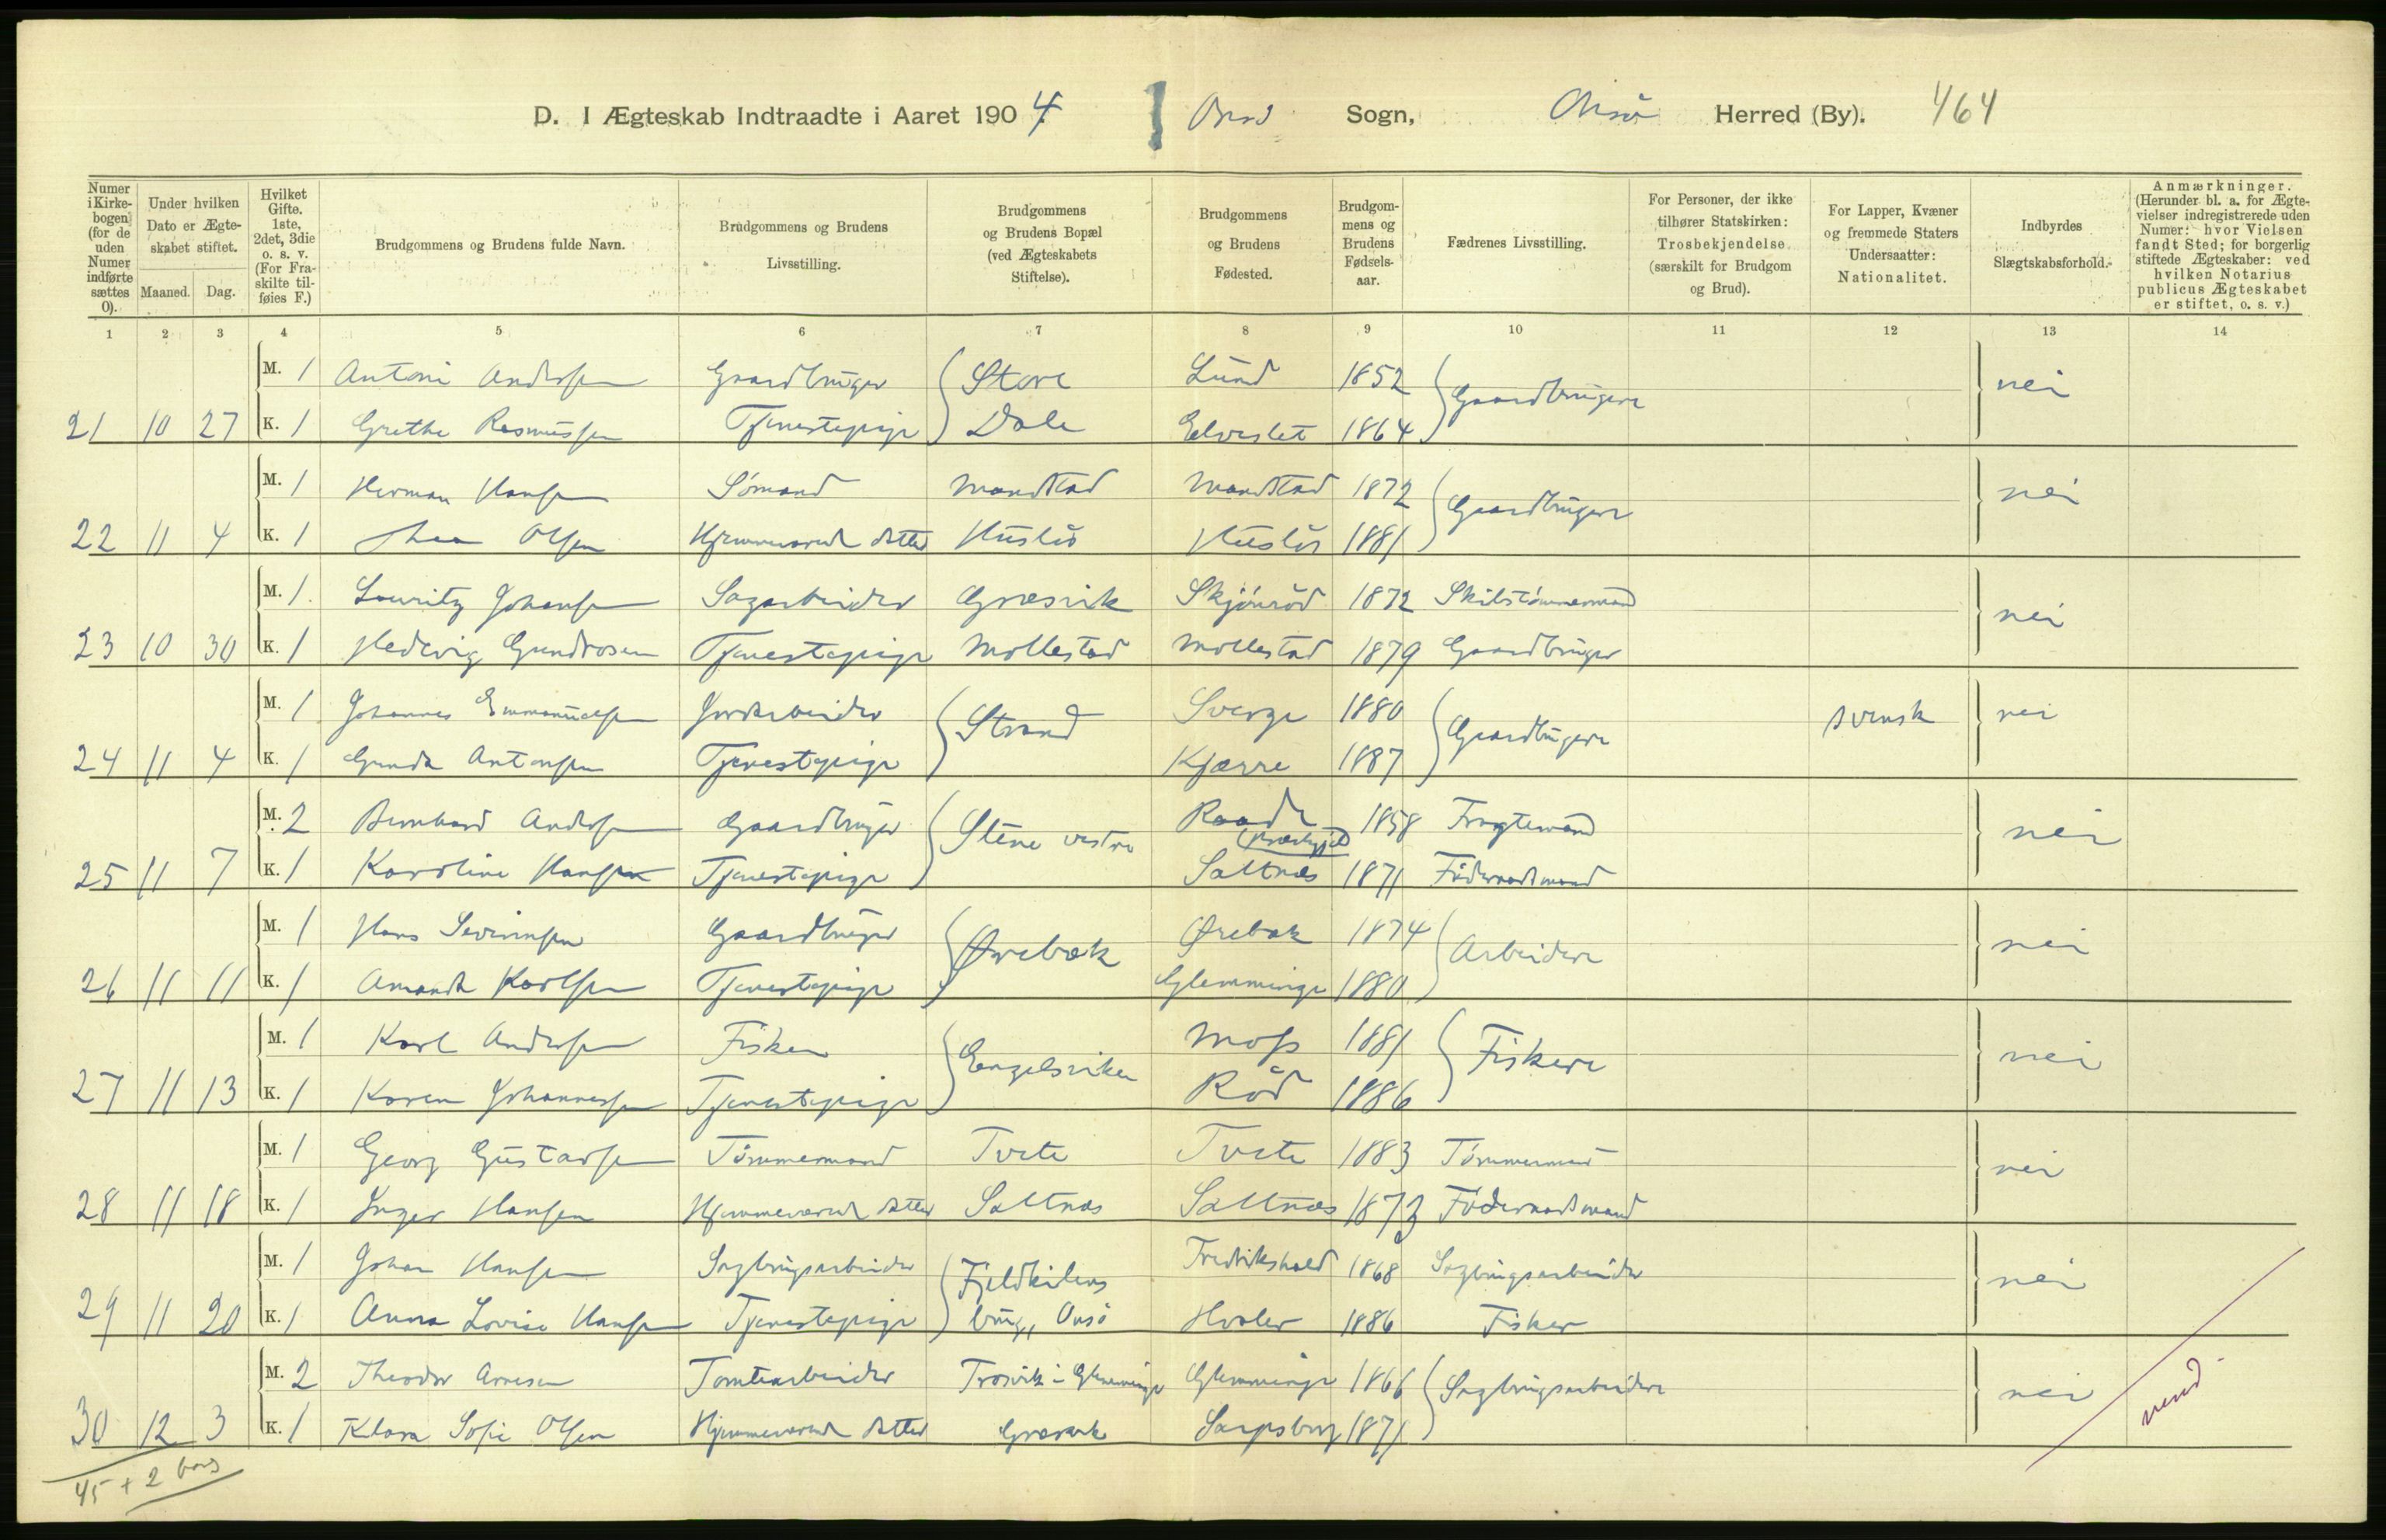 D. I Ægteskab Indtraadte i Aaret 1904. Onsö Sogn, Onsö Herred (By). 464
Numer i Kirkebogen (for de uden Numer indførte sættes 0).
Under hvilken Dato er Ægteskabet stiftet.
Maaned. Dag.
Hvilket Gifte. 1ste, 2det, 3die o. s. v. (For Fraskilte tilføies F.)
Brudgommens og Brudens fulde Navn.
Brudgommens og Brudens Livsstilling.
Brudgommens og Brudens Bopæl (ved Ægteskabets Stiftelse).
Brudgommens og Brudens Fødested.
Brudgommens og Brudens Fødselsaar.
Fædrenes Livsstilling.
For Personer, der ikke tilhører Statskirken: Trosbekjendelse (særskilt for Brudgom og Brud).
For Lapper, Kvæner og fremmede Staters Undersaatter: Nationalitet.
Indbyrdes Slægtskabsforhold.
Anmærkninger. (Herunder bl. a. for Ægtevielser indregistrerede uden Numer: hvor Vielsen fandt Sted; for borgerlig stiftede Ægteskaber: ved hvilken Notarius publicus Ægteskabet er stiftet, o. s. v.)
1 2 3 4 5 6 7 8 9 10 11 12 13 14
M. 1 Antoni Andersen Gaardbruger Store Lund 1852 Gaardbrugere nei
21 10 27 K. 1 Grethe Rasmussen Tjenestepige Dale Elveslet 1864
M. 1 Herman Hansen Sömand Mandstad Mandstad 1872 Gaardbrugere nei
22 11 4 K. 1 Thea Olsen Hjemmeværende datter Huslö Huslös 1881
M. 1 Lauritz Johansen Sagarbeider Græsvik Skjönröd 1872 Skibstömmermand nei
23 10 30 K. 1 Hedevig Gundrosen Tjenestepige Mollestad Mollestad 1879 Gaardbruger
M. 1 Johannes Emmanuelsen Jordarbeider Strand Sverge 1880 Gaardbrugere svensk nei
24 11 4 K. 1 Gunda Antonsen Tjenestepige Kjærre 1887
M. 2 Bernhard Andersen Gaardbruger Stene vestre Raade (Præstegjeld) 1858 Fragtemand nei
25 11 7 K. 1 Karoline Hansen Tjenestepige Saltnæs 1871 Föderaadsmand
M. 1 Hans Severinsen Gaardbruger Ørebæk Ørebæk 1874 Arbeidere nei
26 11 11 K. 1 Amanda Karlsen Tjenestepige Glemminge 1880
M. 1 Karl Andersen Fisker Engelsviken Moss 1881 Fiskere nei
27 11 13 K. 1 Karen Johannessen Tjenestepige Röd 1886
M. 1 Georg Gustavsen Tömmermand Tvete Tvete 1883 Tömmermand nei
28 11 18 K. 1 Inger Hansen Hjemmeværende datter Saltnæs Saltnæs 1873 Föderaadsmand
M. 1 Johan Hansen Sagbrugsarbeider Fjeldkilens Fredrikshald 1868 Sagbrugsarbeider nei
29 11 20 K. 1 Anna Lovise Hansen Tjenestepige brug, Onsö Hvaler 1886 Fisker
M. 2 Theodor Arnesen Tomtearbeider Trosvik i Glemminge Glemminge 1866 Sagbrugsarbeidere nei
30 12 3 K. 1 Klara Sofie Olsen Hjemmeværende datter Græsvik Sarpsborg 1871
45 + 2